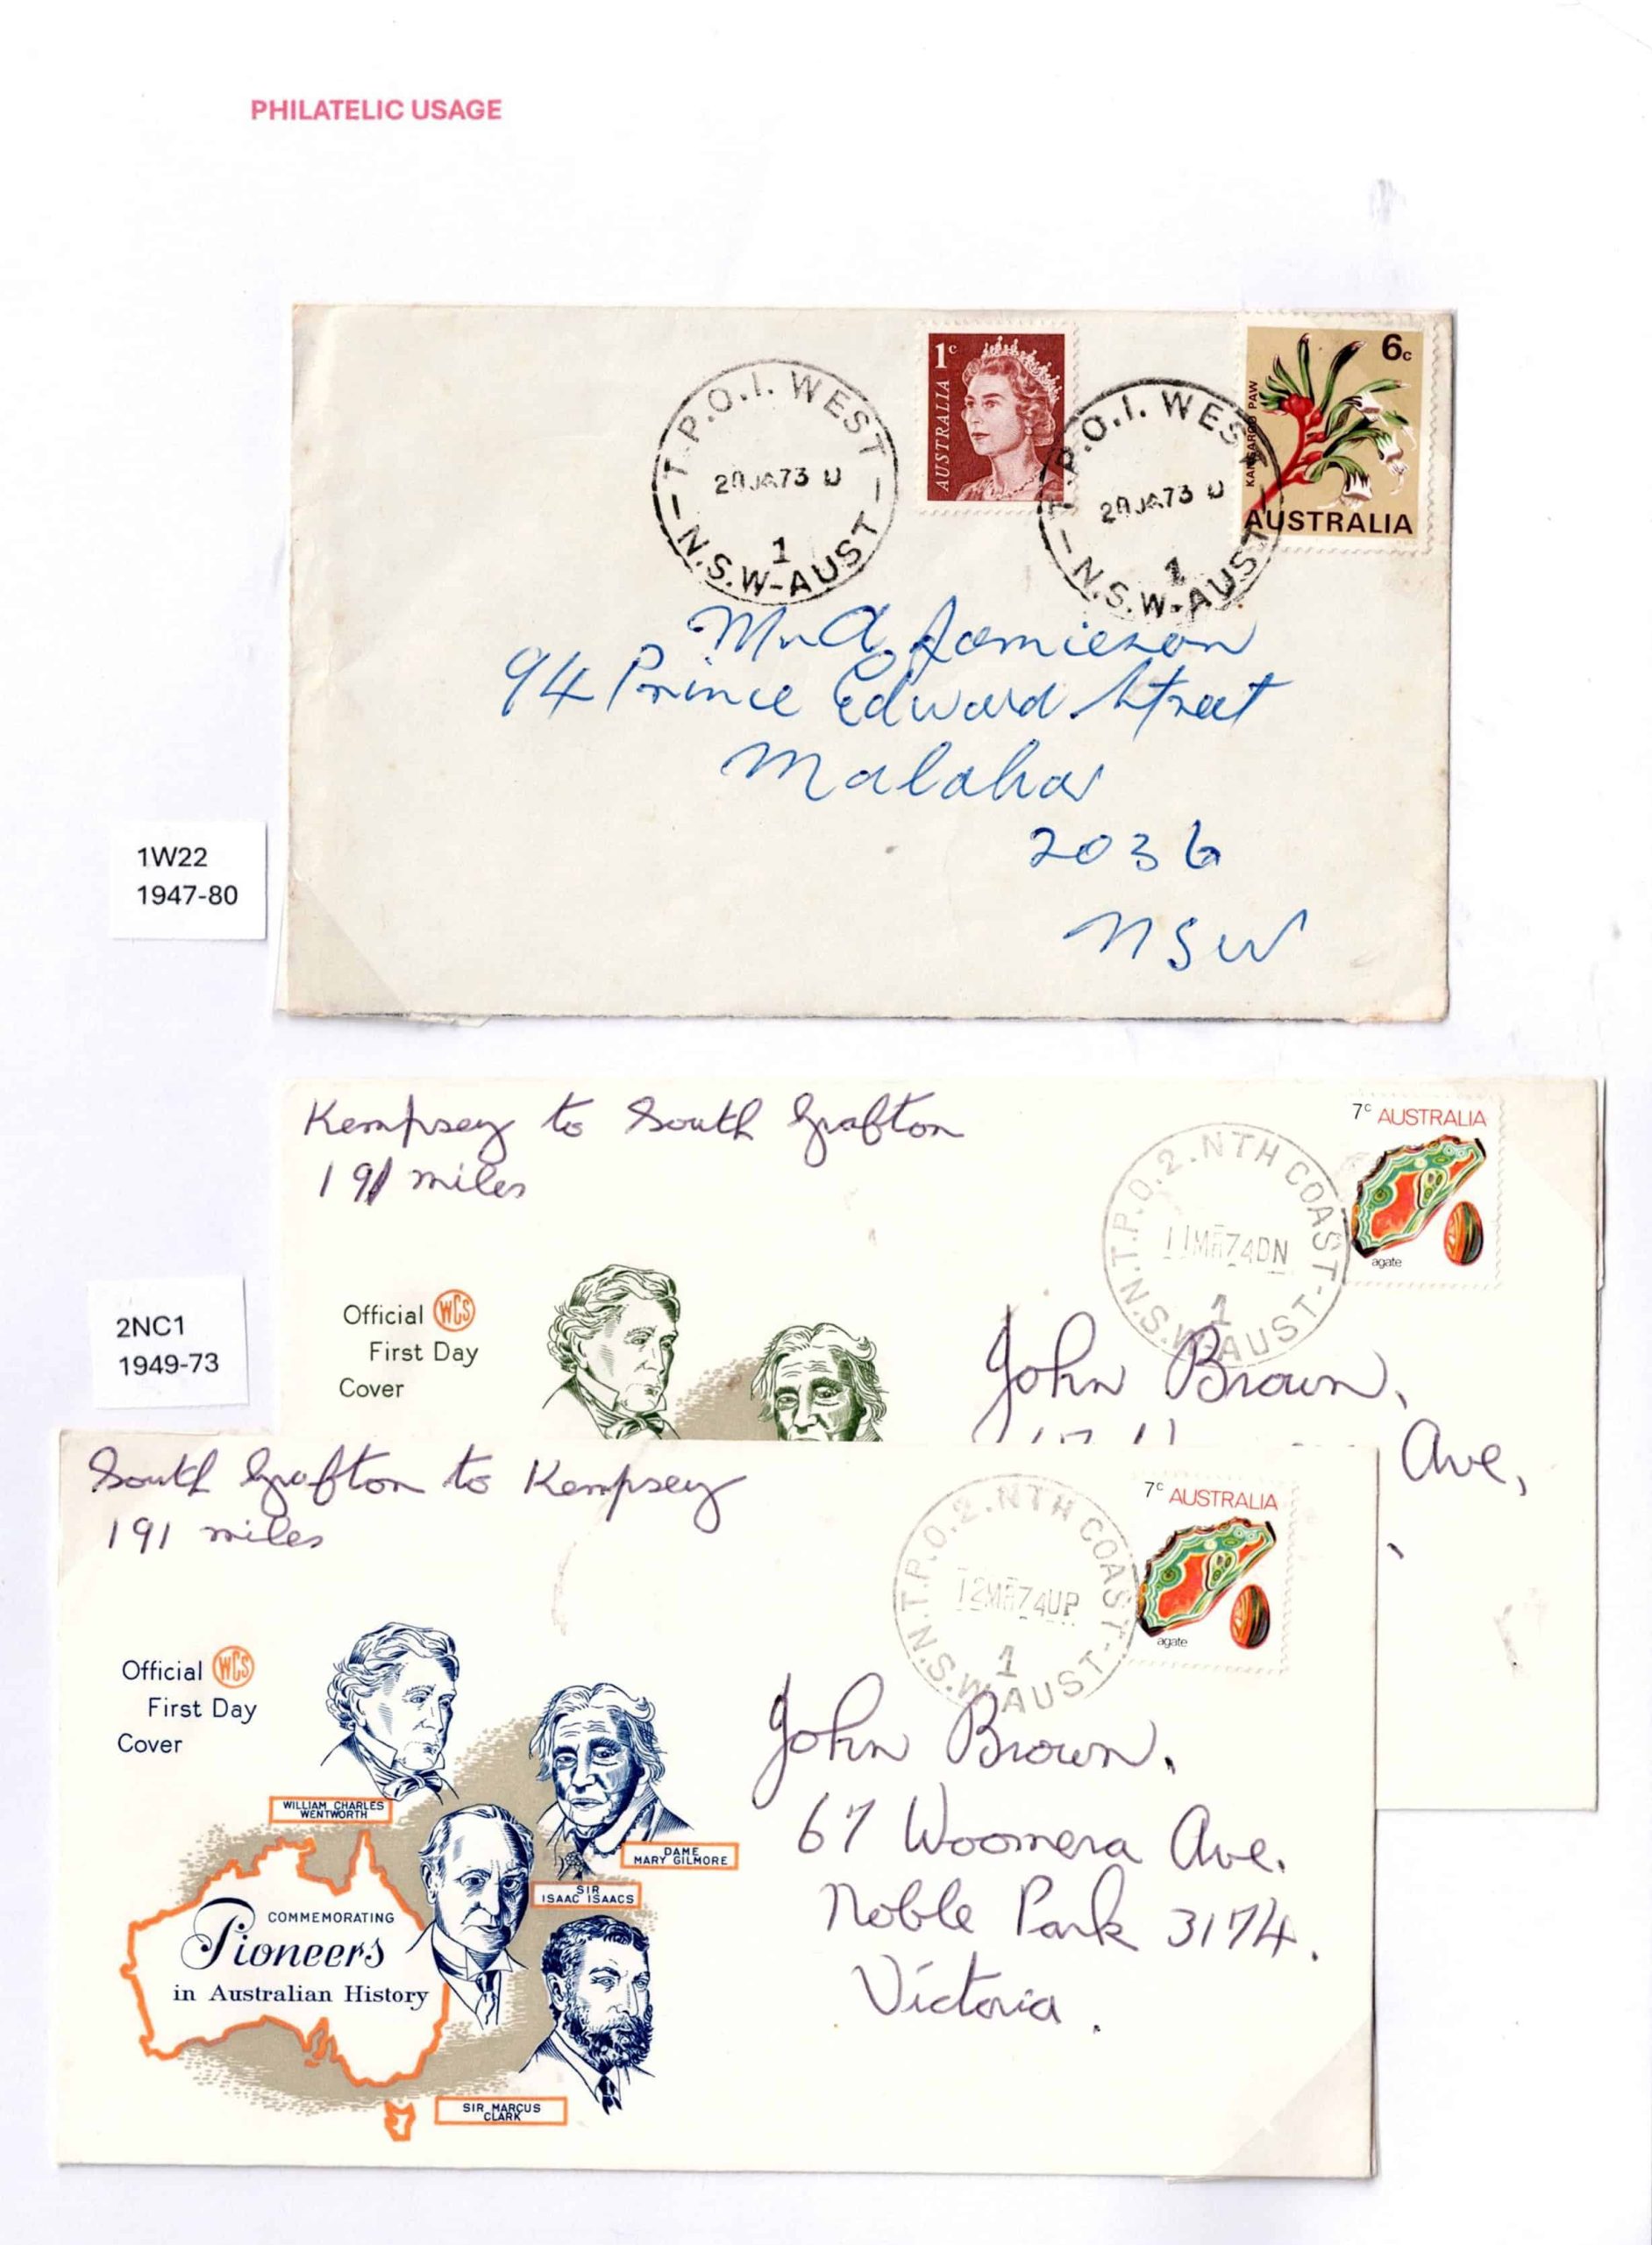 PHILATELIC USAGE
T.P.O.1. WEST
20JA73 U
1
N.S.W-AUST
1c
AUSTRALIA
T.P.O.1. WEST
20JA73 U
1
N.S.W-AUST
6c
KANGAROO PAW
AUSTRALIA
Mr A Jamieson
94 Prince Edward Street
Malabar
2036
NSW
1W22
1947-80
Kempsey to South Grafton
191 miles
T.P.O.2.NTH COAST
11MR74DN
1
N.S.W-AUST
7c AUSTRALIA
agate
Official WCS
First Day
Cover
John Brown,
Ave,
2NC1
1949-73
South Grafton to Kempsey
191 miles
T.P.O.2.NTH COAST
12MR74UP
1
N.S.W-AUST
7c AUSTRALIA
agate
Official WCS
First Day
Cover
John Brown,
67 Woomera Ave.
Noble Park 3174.
Victoria.
WILLIAM CHARLES
WENTWORTH
DAME
MARY GILMORE
SIR
ISAAC ISAACS
COMMEMORATING
Pioneers
in Australian History
SIR MARCUS
CLARK